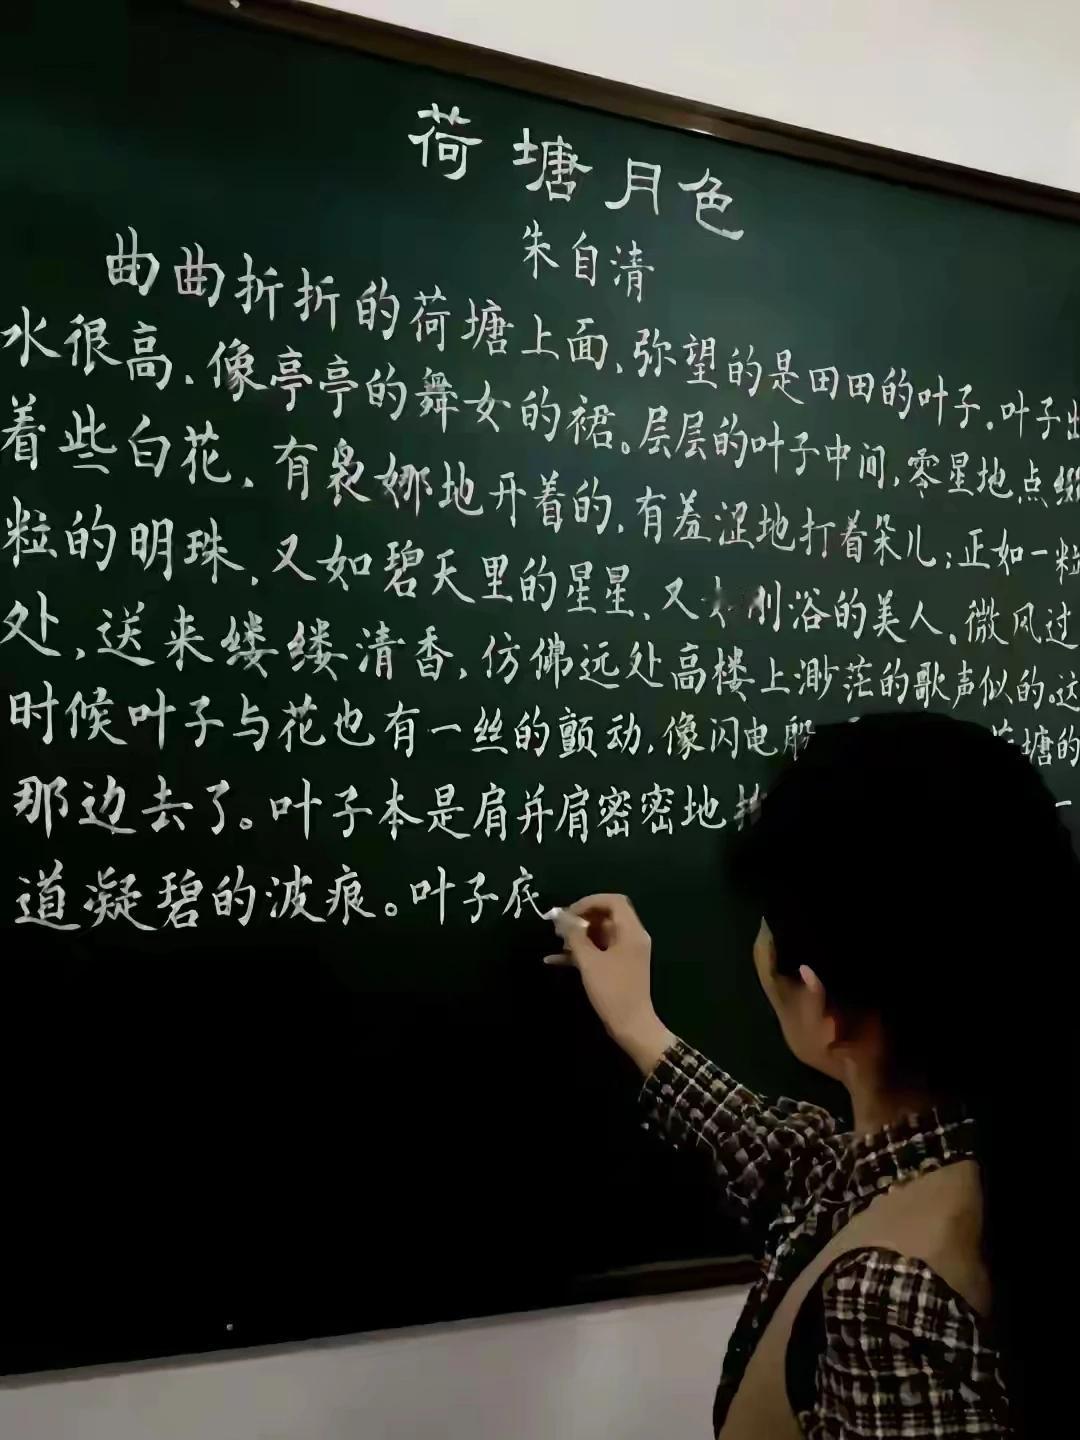 荷塘月色
朱自清
曲曲折折的荷塘上面、弥望的是田田的叶子.叶子出
水很高.像亭亭的舞女的裙。层层的叶子中间,零星地点缀
着些白花,有袅娜地开着的,有羞涩地打着朵儿;正如一粒
粒的明珠,又如碧天里的星星,又 浴的美人。微风过
处,送来缕缕清香,仿佛远处高楼上渺茫的歌声似的。这
时候叶子与花也有一丝的颤动,像闪电般 塘的
那边去了。叶子本是肩并肩密密地 一
道凝碧的波痕。叶子底